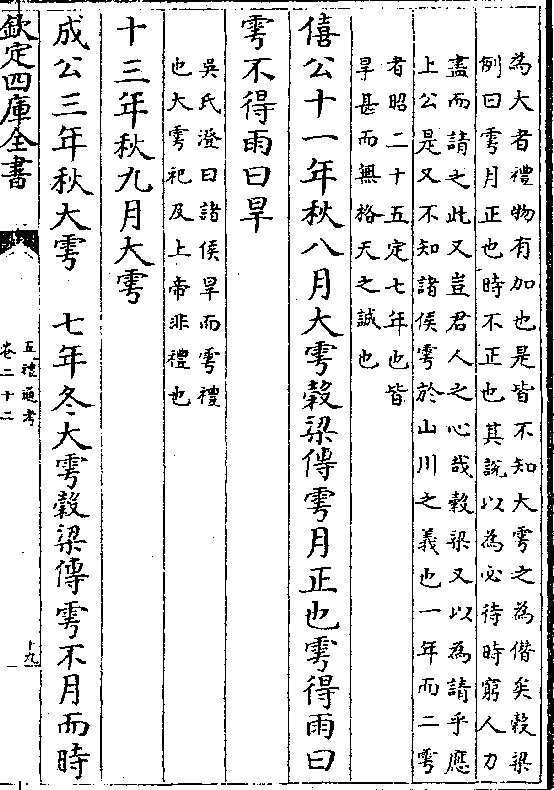 為大者禮物有加也是皆不知大雩之為僭矣穀梁
例曰雩月正也時不正也其說以為必待時窮人力
盡而請之此又豈君人之心哉穀梁又以為請乎應
上公是又不知諸侯雩於山川之義也一年而二雩
者昭二十五定七年也皆
旱甚而無格天之誠也
僖公十一年秋八月大雩穀梁傳雩月正也雩得雨曰
雩不得雨曰旱
吳氏澄曰諸侯旱而雩禮
也大雩祀及上帝非禮也
十三年秋九月大雩
成公三年秋大雩 七年冬大雩穀梁傳雩不月而時
欽定四庫全書
五禮通考
卷二十二
十九